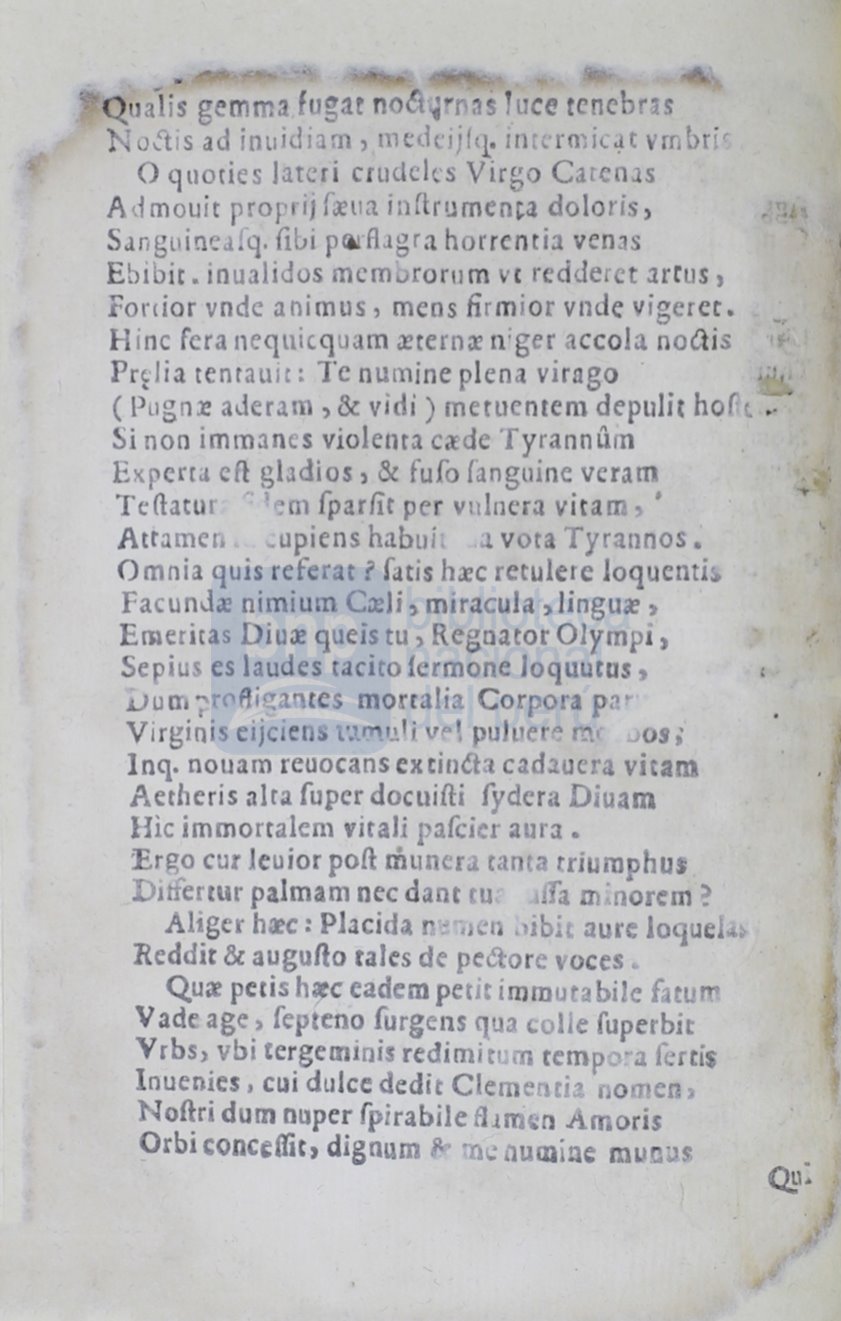 Qualis gemma fugat nocturnas luce tenebras
Noctis ad inuidiam, medeijſq. intermicat vmbris
O quoties lateri crudeles Virgo Catenas
Admouit proprij ſæua inſtrumenta doloris,
Sanguineaſq. ſibi per flagra horrentia venas
Ebibit. inualidos membrorum vt redderet artus,
Fortior vnde animus, mens firmior vnde vigeret.
Hinc fera nequicquam æternæ niger accola noctis
Pręlia tentauit: Te numine plena virago
(Pugnæ aderam, & vidi) metuentem depulit hoſtē
Si non immanes violenta cæde Tyrannûm
Experta eſt gladios, & fuſo ſanguine veram
Teſtatur ſparſit per vulnera vitam,
Attamen cupiens habuit vota Tyrannos.
Omnia quis referat? ſatis hæc retulere loquentis
Facundæ nimium Cæli, miracula, linguæ,
Emeritas Diuæ queis tu, Regnator Olympi,
Sepius es laudes tacito ſermone loquutus,
Dum profligantes mortalia Corpora
Virginis eijciens tumuli vel puluere
Inq. nouam reuocans extincta cadauera vitam
Aetheris alta ſuper docuiſti ſydera Diuam
Hìc immortalem vitali paſcier aura.
Ergo cur leuior poſt munera tanta triumphus
Differtur palmam nec dant minorem?
Aliger hæc: Placida numen bibit aure loquelas
Reddit & auguſto tales de pectore voces.
Quæ petis hæc eadem petit immutabile fatum
Vade age, ſepteno ſurgens qua colle ſuperbit
Vrbs, vbi tergeminis redimitum tempora ſertis
Inuenies, cui dulce dedit Clementia nomen,
Noſtri dum nuper ſpirabile flamen Amoris
Orbi conceſſit, dignum & me numine munus
Qui
bnp biblioteca
nacional
del perú